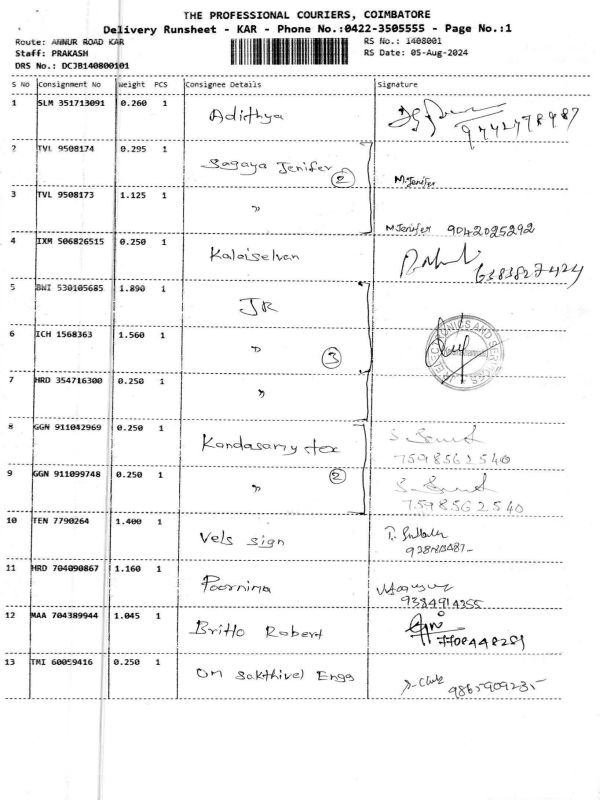 THE PROFESSIONAL COURIERS, COIMBATORE
Delivery Runsheet - KAR - Phone No.:0422-3505555 - Page No.:1
Route: ANNUR ROAD KAR RS No.: 1408001
Staff: PRAKASH RS Date: 05-Aug-2024
DRS No.: DCJB140800101
S No Consignment No Weight PCS Consignee Details Signature
1 SLM 351713091 0.260 1 Adithya
9742778987
2 TVL 9508174 0.295 1 Sagaya Jenifer (2) M.Jenifer
3 TVL 9508173 1.125 1 " M Jenifer 9042025292
4 IXM 506826515 0.250 1 Kalaiselvan
6383827424
5 BWI 530105685 1.890 1 JR
6 ICH 1568363 1.560 1 " (3)
7 HRD 354716300 0.250 1 "
8 GGN 911042969 0.250 1 Kandasamy tex
7598562540
9 GGN 911099748 0.250 1 " (2)
7598562540
10 TEN 7790264 1.400 1 Vels sign
11 HRD 704090867 1.160 1 Poornima
9384914355
12 MAA 704389944 1.045 1 Britto Robert
13 TMI 60059416 0.250 1 Om Sakthivel Engg